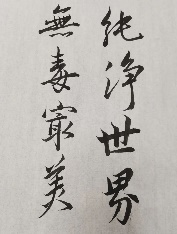 纯净世界
無毒寂美